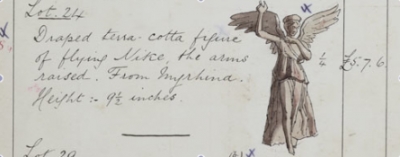 Lot. 24
Draped terra-cotta figure
of flying Nike, the arms
raised. From Myrhina.
Height:- 9½ inches.
½ £5.7.6
Lot 29